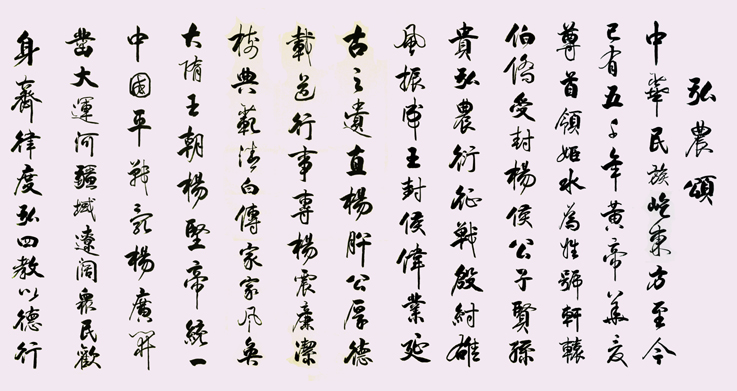 弘農頌
中華民族屹東方至今
已有五千年黃帝華夏
尊首領姬水為姓號軒轅
伯僑受封楊侯公子賢孫
貴弘農衍征戰殷紂雄
風振王封侯偉業延
古之遺直楊肸公厚德
載道行事專楊震廉潔
典範清白傳家家風奐
大隋王朝楊堅帝統一
中國平戰亂楊廣開
凿大運河疆域遼闊眾民歡
身齊律度弘四教以德行